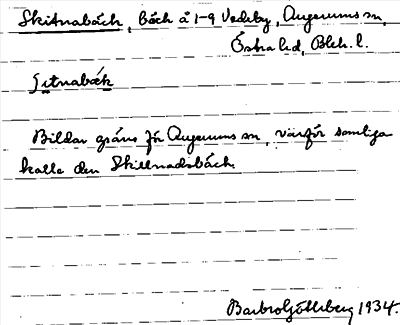 Skitnabäck, bäck å 1-9 Vedeby, Augerums sn,
Östra hd, Blek. l.
Bildar gräns för Augerums sn, varför somliga
kalla den Skillnadsbäck
1934.